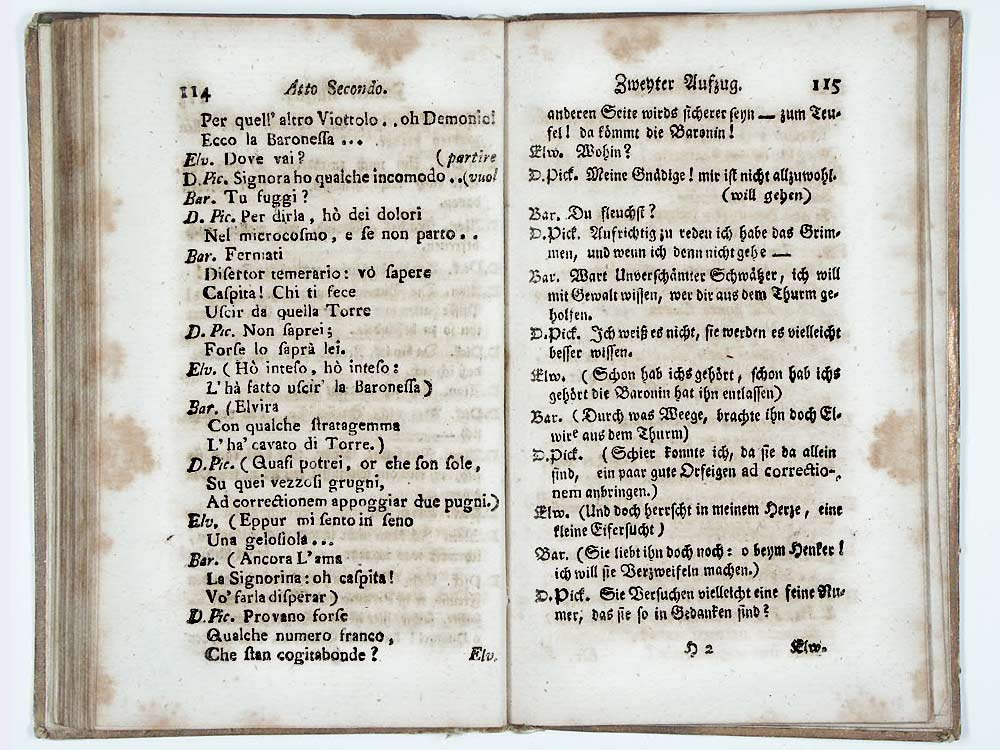 114 Atto Secondo.
Per quell' altro Viottolo . . oh Demonio!
Ecco la Baroneſſa ...
Elv. Dove vai? (partire
D. Pic. Signora ho qualche incomodo . . (vuol
Bar. Tu fuggi?
D. Pic. Per dirla, hò dei dolori
Nel microcoſmo, e ſe non parto . .
Bar. Fermati
Diſertor temerario: vò ſapere
Caſpita! Chi ti fece
Uſcir da quella Torre
D. Pic. Non ſaprei;
Forſe lo ſaprà lei.
Elv. (Hò inteſo, hò inteſo:
L' hà fatto uſcir' la Baroneſſa)
Bar. (Elvira
Con qualche ſtratagemma
L' ha' cavato di Torre.)
D. Pic. (Quaſi potrei, or che ſon ſole,
Su quei vezzoſi grugni,
Ad correctionem appoggiar due pugni.)
Elv. (Eppur mi ſento in ſeno
Una geloſiola...
Bar. (Ancora L'ama
La Signorina: oh caſpita!
Vo' farla diſperar)
D. Pic. Provano forſe
Qualche numero franco,
Che ſtan cogitabonde?
Elv.
Zweyter Aufzug. 115
anderen Seite wirds ſicherer ſeyn — zum Teu-
fel! da kömmt die Baronin!
Elw. Wohin?
D. Pick. Meine Gnädige! mir iſt nicht allzuwohl.
(will gehen)
Bar. Du fleuchſt?
D. Pick. Aufrichtig zu reden ich habe das Grim-
men, und wenn ich denn nicht gehe —
Bar. Wart Unverſchämter Schwätzer, ich will
mit Gewalt wiſſen, wer dir aus dem Thurm ge-
holfen.
D. Pick. Ich weiß es nicht, ſie werden es vielleicht
beſſer wiſſen.
Elw. (Schon hab ichs gehört, ſchon hab ichs
gehört die Baronin hat ihn entlaſſen)
Bar. (Durch was Weege, brachte ihn doch El-
wire aus dem Thurm)
D. Pick. (Schier konnte ich, da ſie da allein
ſind, ein paar gute Orfeigen ad correctio-
nem anbringen.)
Elw. (Und doch herrſcht in meinem Herze, eine
kleine Eiferſucht)
Bar. (Sie liebt ihn doch noch: o beym Henker!
ich will ſie Verzweifeln machen.)
D. Pick. Sie Verſuchen vielleicht eine feine Nu-
mer, das ſie ſo in Gedanken ſind?
H 2 Elw.